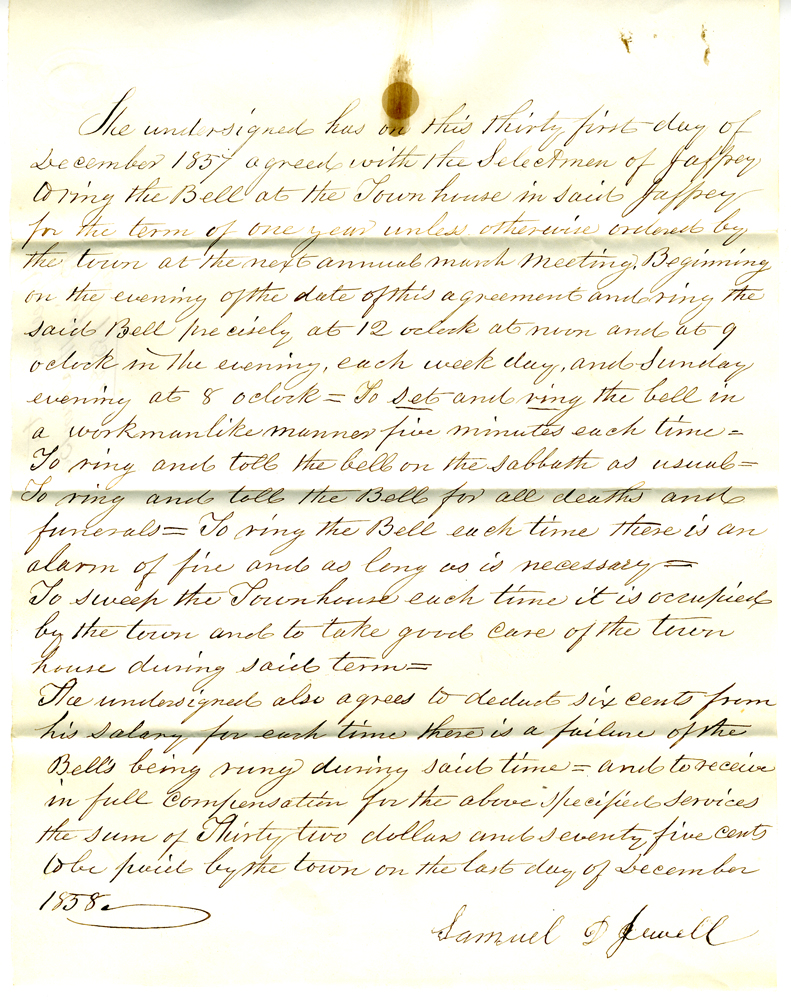 The undersigned has on this thirty first day of
December 1857 agreed with the Selectmen of Jaffrey
to ring the Bell at the Town house in said Jaffrey
for the term of one year unless otherwise ordered by
the town at the next annual march Meeting, Beginning
on the evening of the date of this agreement and ring the
said Bell precisely at 12 oclock at noon and at 9
oclock in the evening, each week day, and Sunday
evening at 8 oclock = To set and ring the bell in
a workmanlike manner five minutes each time =
To ring and toll the bell on the sabbath as usual =
To ring and toll the Bell for all deaths and
funerals = To ring the Bell each time there is an
alarm of fire and as long as is necessary =
To sweep the Townhouse each time it is occupied
by the town and to take good care of the town
house during said term =
The undersigned also agrees to deduct six cents from
his salary for each time there is a failure of the
Bells being rung during said time = and to receive
in full compensation for the above specified services
the sum of Thirty two dollars and seventy five cents
to be paid by the town on the last day of December
1858.
Samuel D Jewell